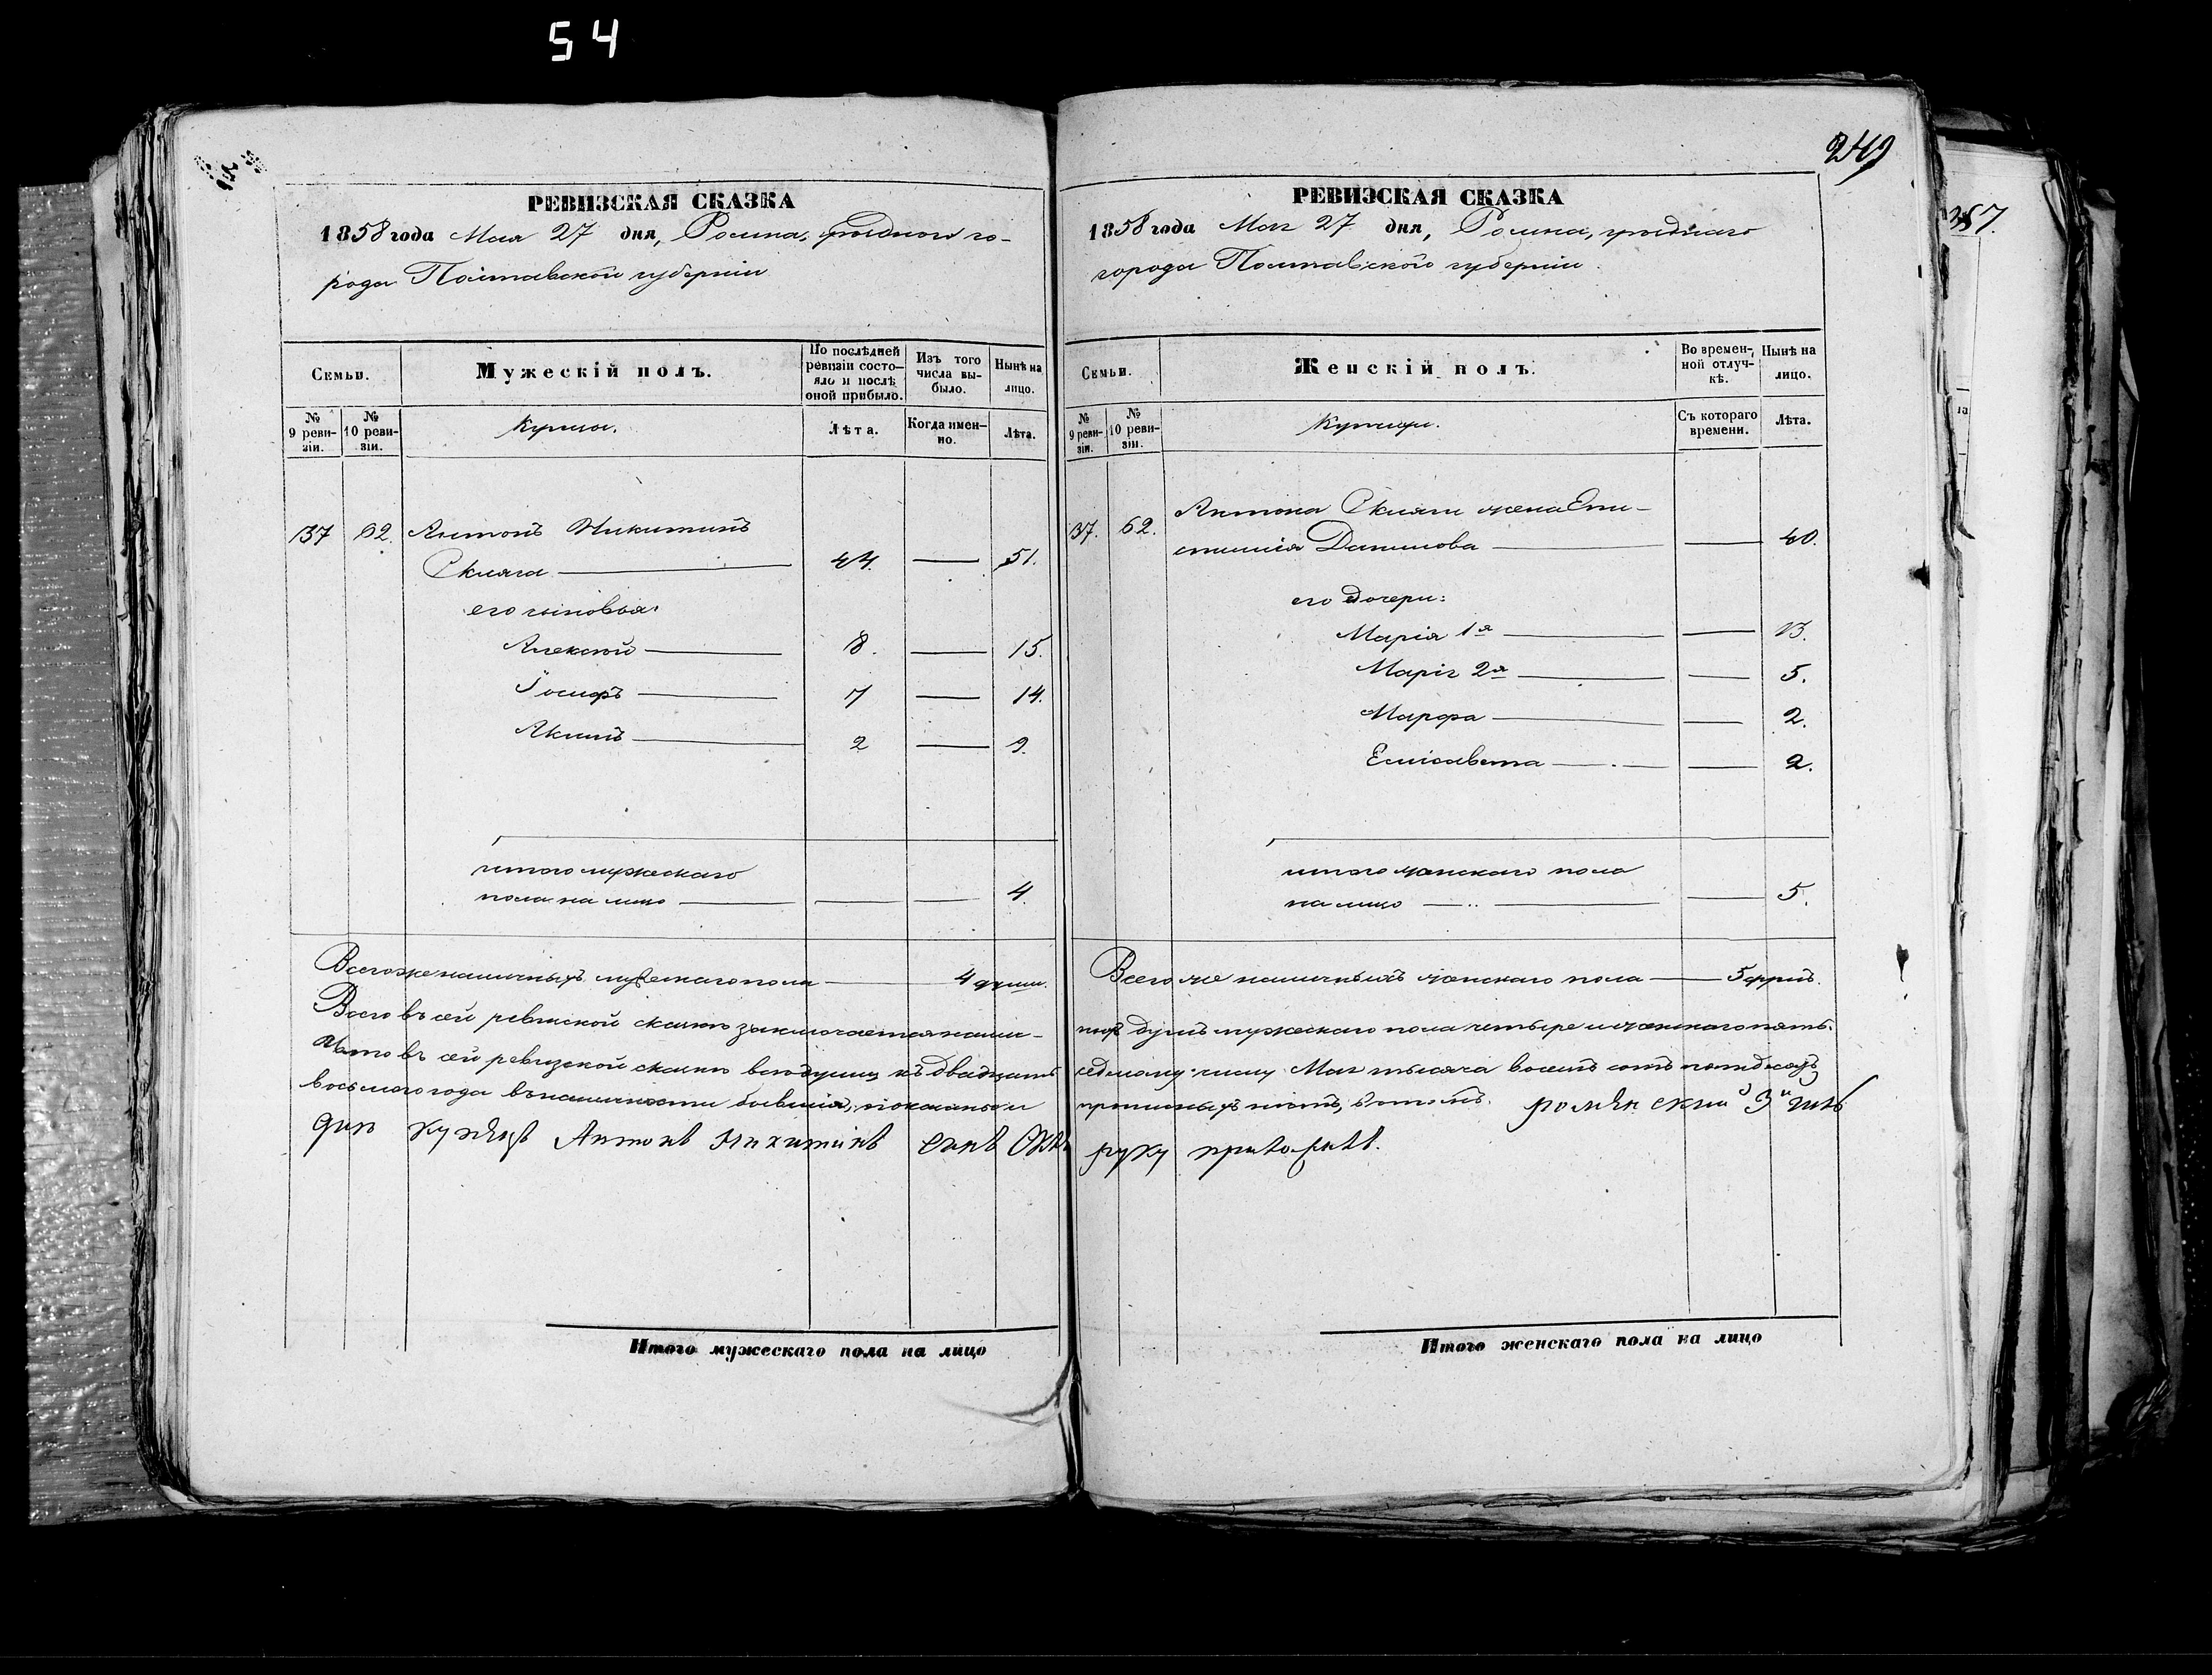 54
РЕВИЗСКАЯ СКАЗКА
1858 года Мая 27 дня, Ромна, уѣзднаго го-
рода Полтавской губерніи
Семьи.
Мужескій полъ.
По послѣдней ревизіи состо-яло и послѣ оной прибыло.
Изъ того числа вы-было.
Нынѣ на лицо.
№ 9 реви-зіи.
№ 10 реви-зіи.
Купцы.
Лѣта.
Когда имен-но.
Лѣта.
37 62. Антонъ Никитинъ
Скляга 44. 51.
его сыновья:
Алексѣй 8. 15.
Іосифъ 7 14.
Акимъ 2 9.
итого мужескаго
пола на лицо 4.
Всего же наличныхъ мужескаго пола 4 души.
Всего въ сей ревизской сказкѣ заключается налич-
Что въ сей ревизской сказкѣ всѣ души къ двадцать
восьмого года въ наличности бывшія, показаны и
купецъ Антонъ Никитинъ сынъ
Итого мужескаго пола на лицо
249
РЕВИЗСКАЯ СКАЗКА
1858 года Мая 27 дня, Ромна, уѣзднаго
города Полтавской губерніи.
Семьи.
Женскій полъ.
Во времен-ной отлуч-кѣ.
Нынѣ на лицо.
№ 9 реви-зіи.
№ 10 реви-зіи.
Купцы.
Съ котораго времени.
Лѣта.
37. 62. Антона Скляги жена Епи-
стимія Данилова 40.
его дочери:
Марія 1я 13.
Марія 2я 5.
Марфа 2.
Елисавета 2.
итого женскаго пола
на лицо 5.
Всего же наличныхъ женскаго пола 5 душъ.
ныхъ душъ мужескаго пола четыре и женскаго пять.
седьмому числу Мая тысяча восемь сотъ пятдесятъ
нѣтъ, въ томъ. роменский 3й
руку приложилъ.
Итого женскаго пола на лицо
387.